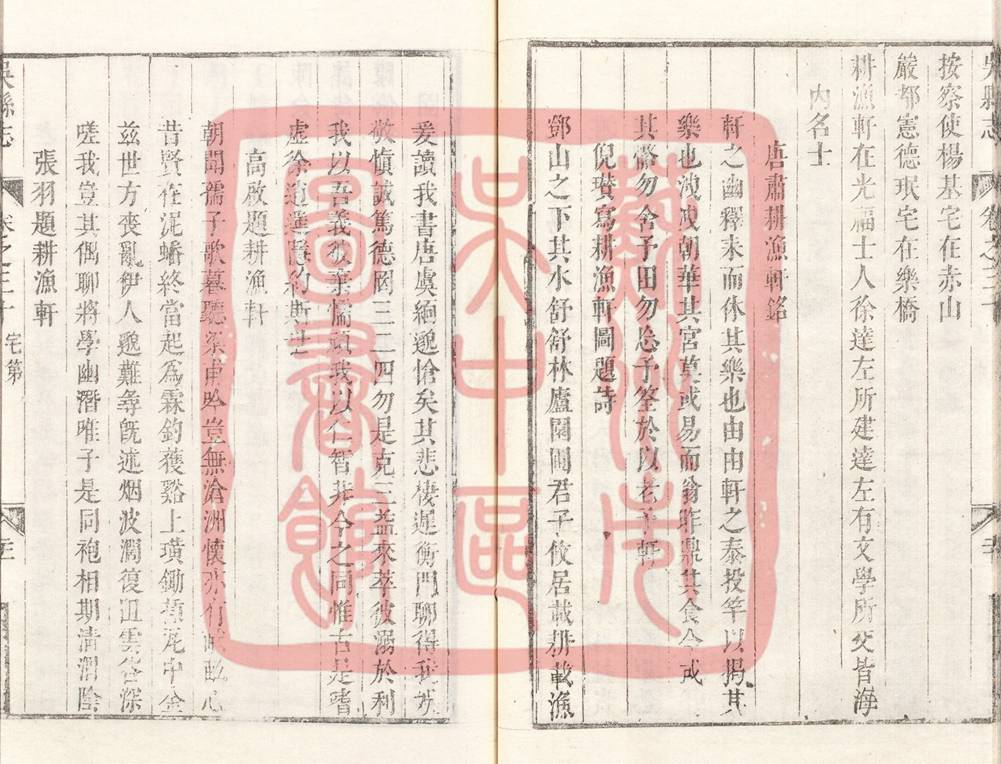 吳縣志 卷之三十
按察使楊基宅在赤山
嚴都憲德珉宅在樂橋
耕漁軒在光福士人徐達左所建達左有文學所交皆海
內名士
唐肅耕漁軒銘
軒之幽釋耒而休其樂也由由軒之泰投竿以
樂也洩洩朝華其宮莫或易而翁昨鼎其食今戎
其 勿舍予田勿忘予筌於以老予軒
倪瓚寫耕漁軒圖題詩
鄧山之下其水舒舒林廬園圃君子攸居載耕載漁
爰讀我書唐虞緬邈愴矣其悲棲遲衡門聊得我
敬慎誠篤德罔三二四勿是克三益來萃彼溺於利
我以吾義彼 懦 我以仁智非今之同惟古是嗜
虛徐逍遙 斯世
高啟題耕漁軒
朝聞孺子歌暮聽梁甫吟豈無滄洲懷 心
昔賢在泥蟠終當起為霖釣獲谿上璜鋤 泥中金
茲世方喪亂伊人邈難尋既迷烟波濶復 雲 深
嗟我豈其偶聊將學幽潛唯子是同袍相期清潤陰
張羽題耕漁軒
吳縣志 卷之三十 宅第
蘇州市吳中區圖書館